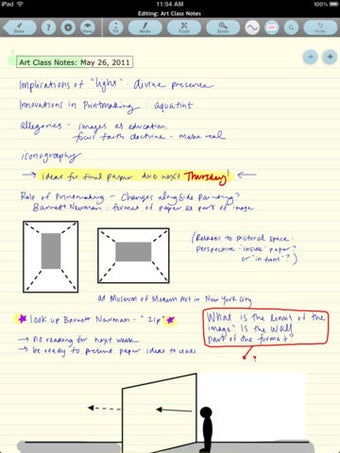 iPad
11:54 AM
100%
Editing: Art Class Notes
Art Class Notes: May 26, 2011
Implications of "light" - divine presence
Innovations in Printmaking: aquatint
allegories - images as education
focus faith doctrine - make real
iconography
→ ideas for final paper due next Thursday! ←
Role of Printmaking - Changes alongside Painting?
Barnett Newman: format of paper as part of image
(Relates to pictorial space
perspective "inside" paper?
or "in front"?)
at Museum of Modern Art in New York City
look up Barnett Newman - "Zip"
→ no reading for next week
→ be ready to present paper ideas to class
What is the limit of the
image? Is the wall
part of the format?
?